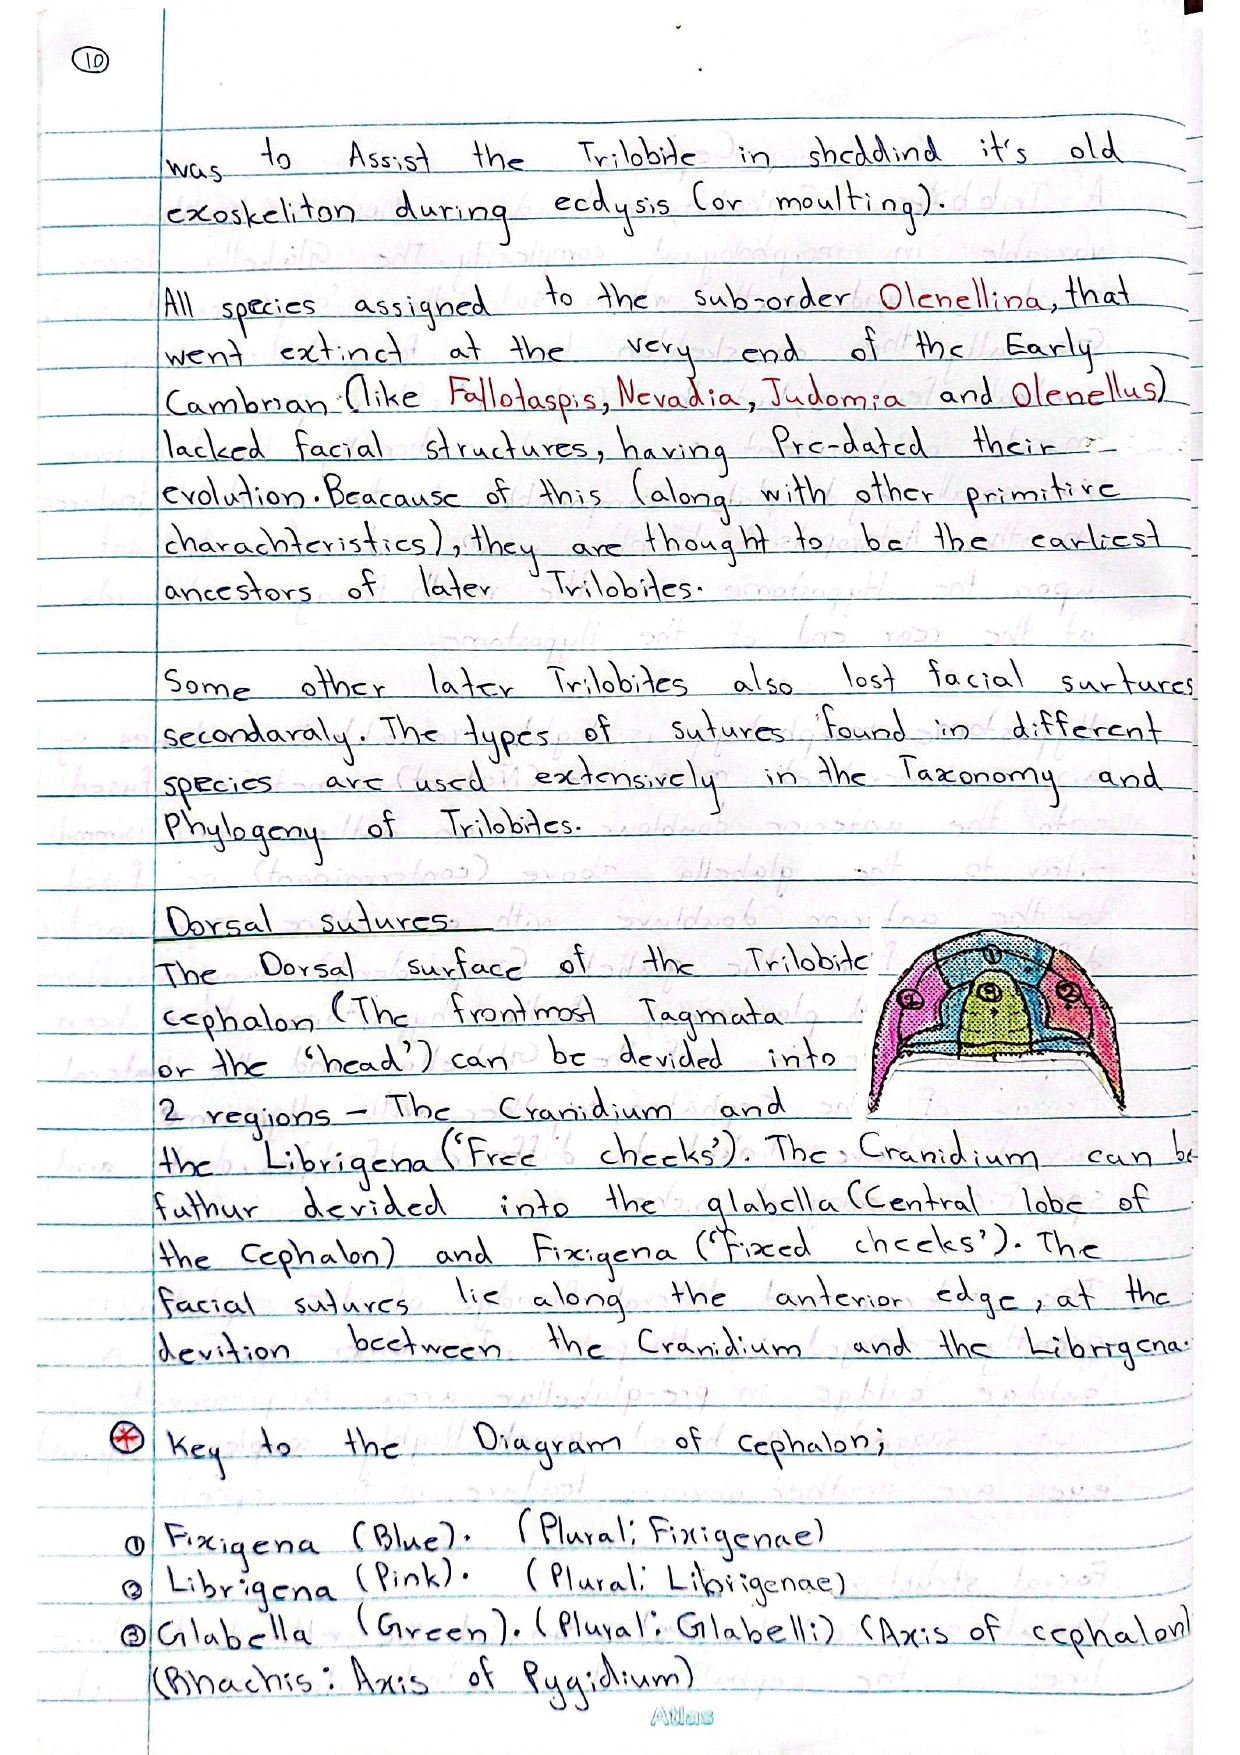 10
was to Assist the Trilobite in sheddind it's old
exoskeliton during ecdysis (or moulting).
All species assigned to the sub-order Olenellina, that
went extinct at the very end of the Early
Cambrian (like Fallotaspis, Nevadia, Judomia and Olenellus)
lacked facial structures, having Pre-dated their
evolution. Beacause of this (along with other primitive
charachteristics), they are thought to be the earliest
ancestors of later Trilobites.
Some other later Trilobites also lost facial surtures
secondaraly. The types of sutures found in different
species are used extensively in the Taxonomy and
Phylogeny of Trilobites.
Dorsal sutures.
The Dorsal surface of the Trilobite
cephalon (The frontmost Tagmata
or the 'head') can be devided into
2 regions - The Cranidium and
the Librigena ('Free cheeks'). The Cranidium can be
futhur devided into the glabella (Central lobe of
the Cephalon) and Fixigena ('Fixed cheeks'). The
facial sutures lie along the anterior edge, at the
devition beetween the Cranidium and the Librigena.
1
2
2
3
Key to the Diagram of cephalon;
1 Fixigena (Blue). (Plural: Fixigenae)
2 Librigena (Pink). (Plural: Librigenae)
3 Glabella (Green). (Plural: Glabelli) (Axis of cephalon)
(Rhachis: Axis of Pygidium)
Atlas